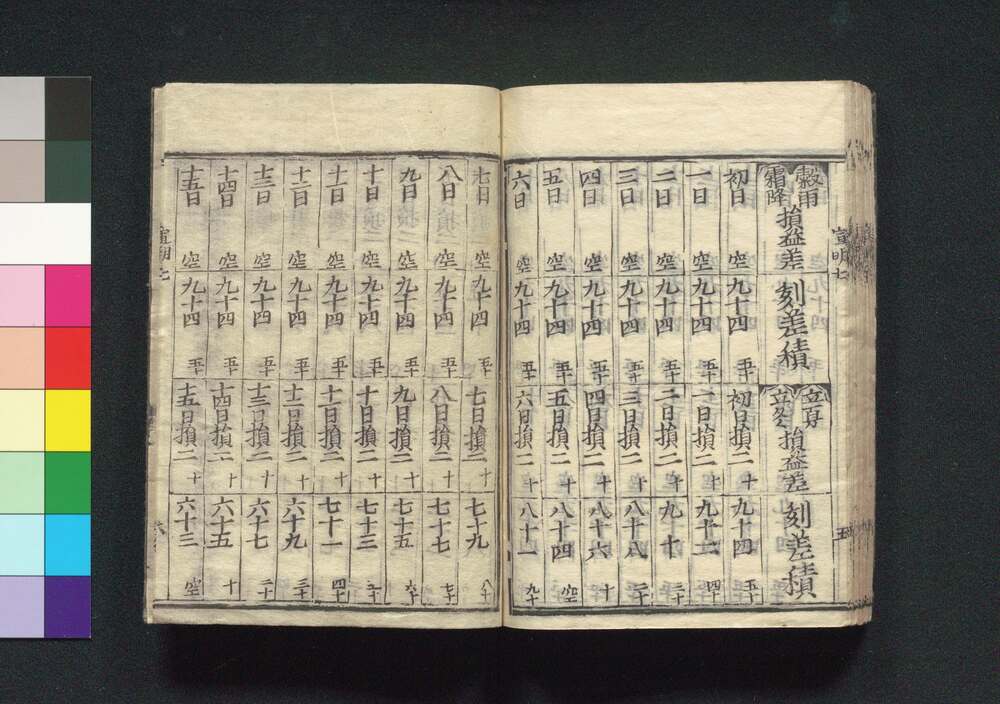 宣明七
五
穀雨 霜降 損益差 刻差積 立夏 立冬 損益差 刻差積
初日 空 九十四 五十 初日損二 十 九十四 五十
一日 空 九十四 五十 一日損二 十 九十二 四十
二日 空 九十四 五十 二日損二 十 九十 三十
三日 空 九十四 五十 三日損二 十 八十八 二十
四日 空 九十四 五十 四日損二 十 八十六 十
五日 空 九十四 五十 五日損二 十 八十四 空
六日 空 九十四 五十 六日損二 十 八十一 九十
七日 空 九十四 五十 七日損二 十 七十九 八十
八日 空 九十四 五十 八日損二 十 七十七 七十
九日 空 九十四 五十 九日損二 十 七十五 六十
十日 空 九十四 五十 十日損二 十 七十三 五十
十一日 空 九十四 五十 十一日損二 十 七十一 四十
十二日 空 九十四 五十 十二日損二 十 六十九 三十
十三日 空 九十四 五十 十三日損二 十 六十七 二十
十四日 空 九十四 五十 十四日損二 十 六十五 十
十五日 空 九十四 五十 十五日損二 十 六十三 空
宣明七